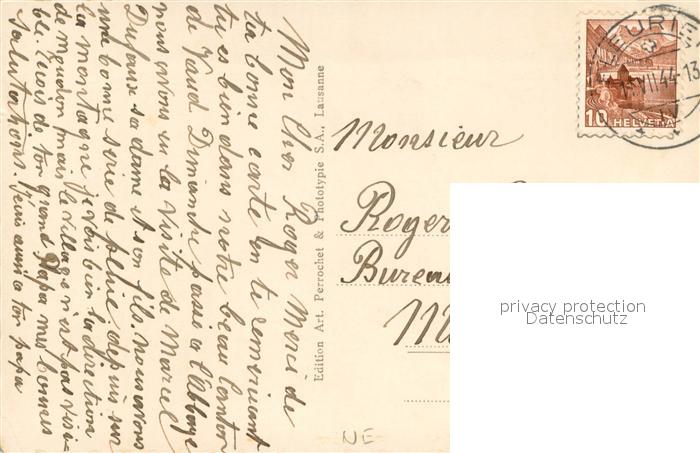 Mon Cher Roger Merci de
ta bonne carte en te remerciant
tu es bien dans notre beau Canton
de Vaud Dimanche passé a l'Abbaye
nous avons eu la visite de Marcel
Dufaux sa dame et son fils. nous avons
une bonne serie de pluie, depuis sur
la montagne je vois bien la direction
de moudon mais le village n'est pas visi-
ble. Reçois de ton grand Papa mes bonnes
Salutations. J'ecris aussi a ton papa
Edition Art. Perrochet & Phototypie S.A., Lausanne
HELVETIA
10
VII.44-13
Monsieur
Roger
Burea
M
NE
privacy protection
Datenschutz